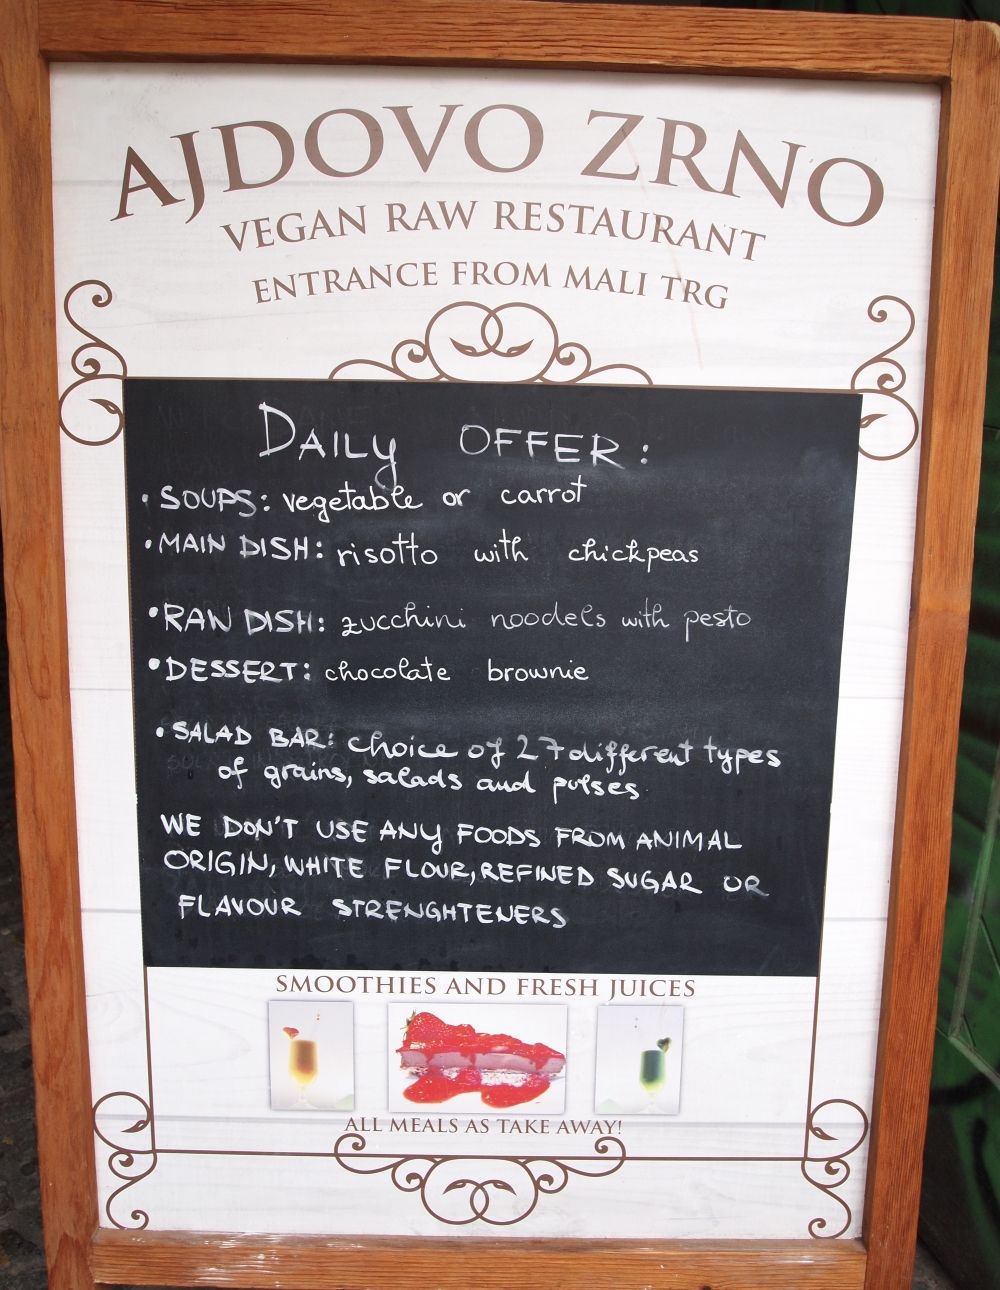 AJDOVO ZRNO
VEGAN RAW RESTAURANT
ENTRANCE FROM MALI TRG
DAILY OFFER:
• SOUPS: vegetable or carrot
• MAIN DISH: risotto with chickpeas
• RAW DISH: zucchini noodels with pesto
• DESSERT: chocolate brownie
• SALAD BAR: choice of 27 different types
of grains, salads and pulses
WE DON'T USE ANY FOODS FROM ANIMAL
ORIGIN, WHITE FLOUR, REFINED SUGAR OR
FLAVOUR STRENGHTENERS
SMOOTHIES AND FRESH JUICES
ALL MEALS AS TAKE AWAY!